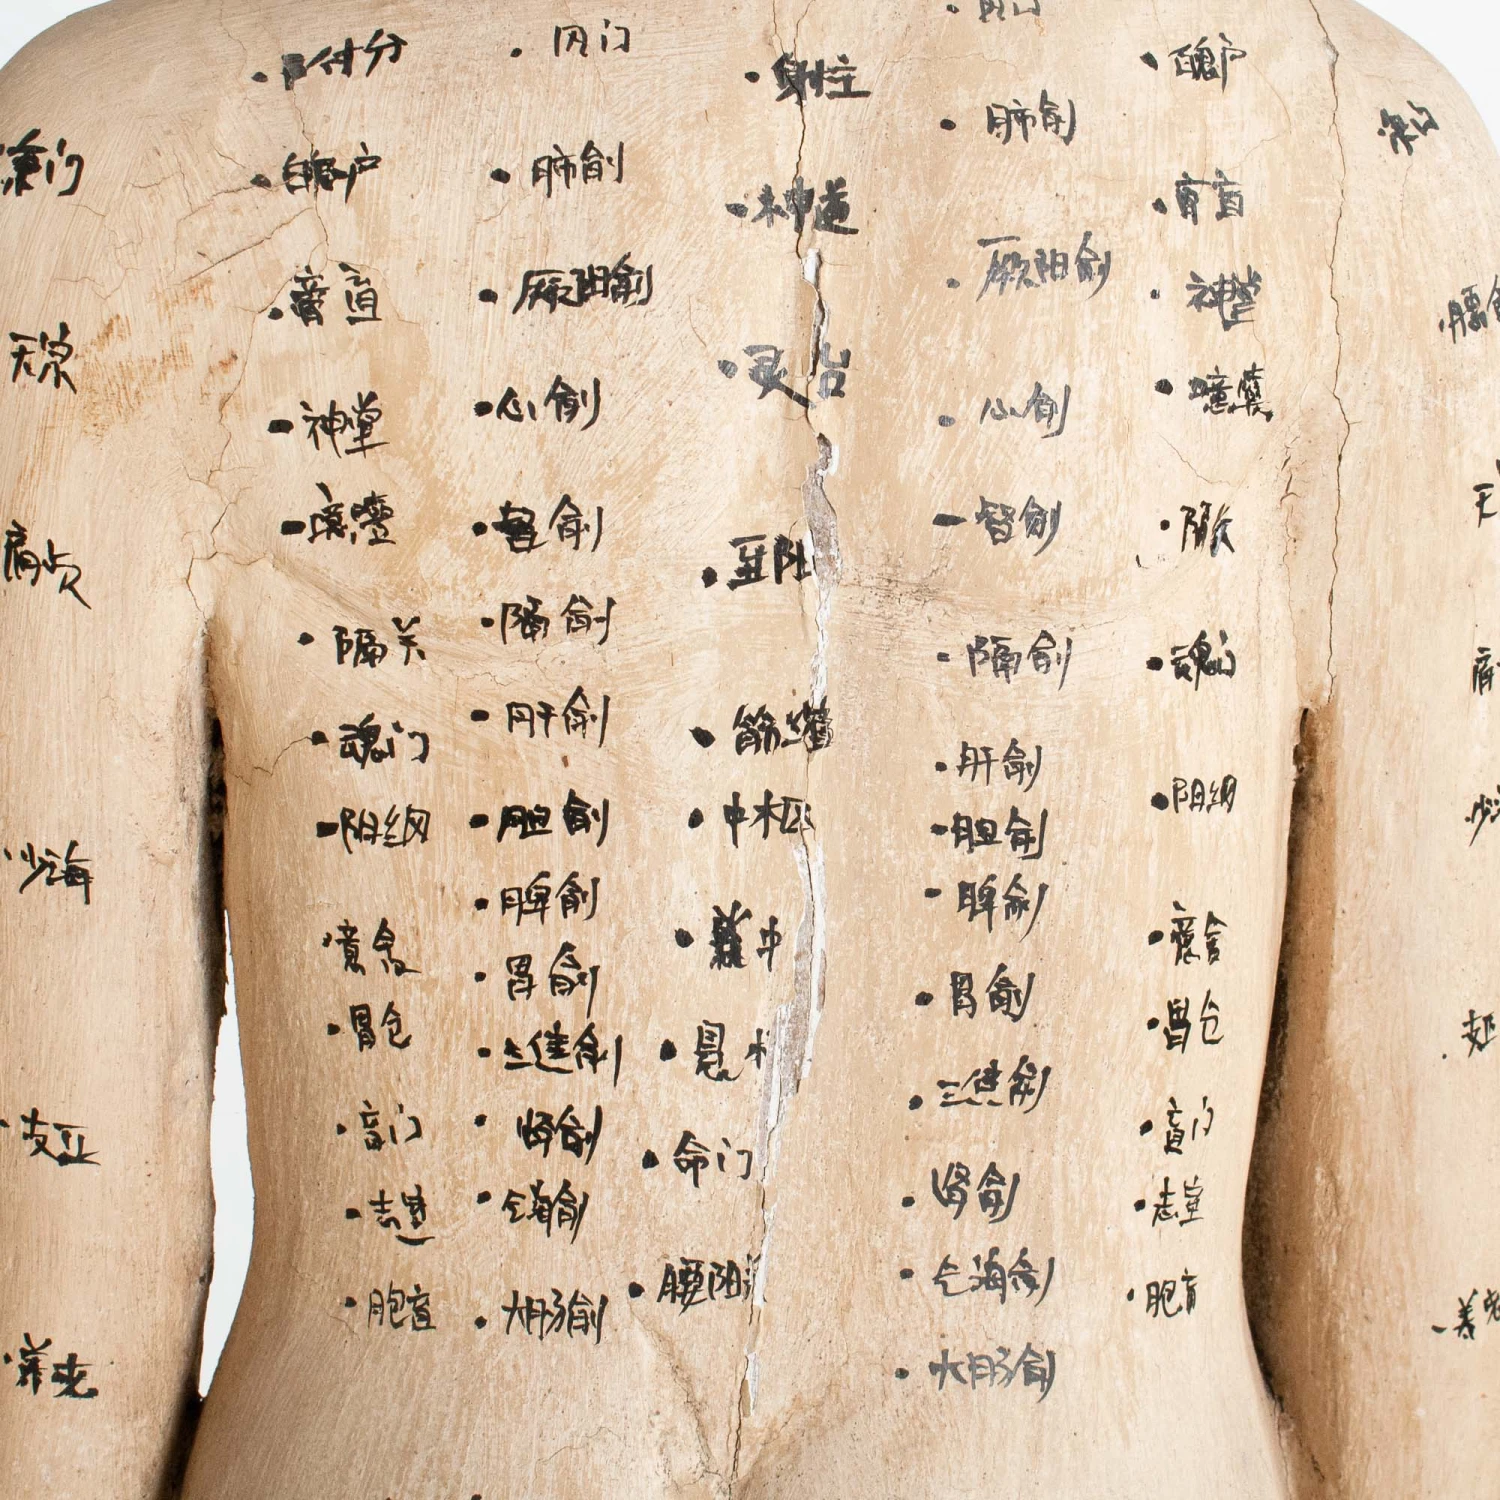 付分
风门
身柱
魄户
肺俞
魄户
肺俞
神道
膏肓
膏肓
厥阴俞
厥阴俞
神堂
灵台
天宗
神堂
心俞
心俞
噫嘻
督俞
督俞
肩贞
隔关
隔俞
隔俞
魂门
魂门
肝俞
筋缩
肝俞
阳纲
阳纲
胆俞
中枢
胆俞
少海
脾俞
脊中
脾俞
意舍
意舍
胃俞
胃俞
胃仓
胃仓
三焦俞
悬
三焦俞
支正
肓门
肾俞
命门
肾俞
肓门
志室
气海俞
气海俞
志室
胞肓
大肠俞
腰阳
大肠俞
胞肓
养老
养老